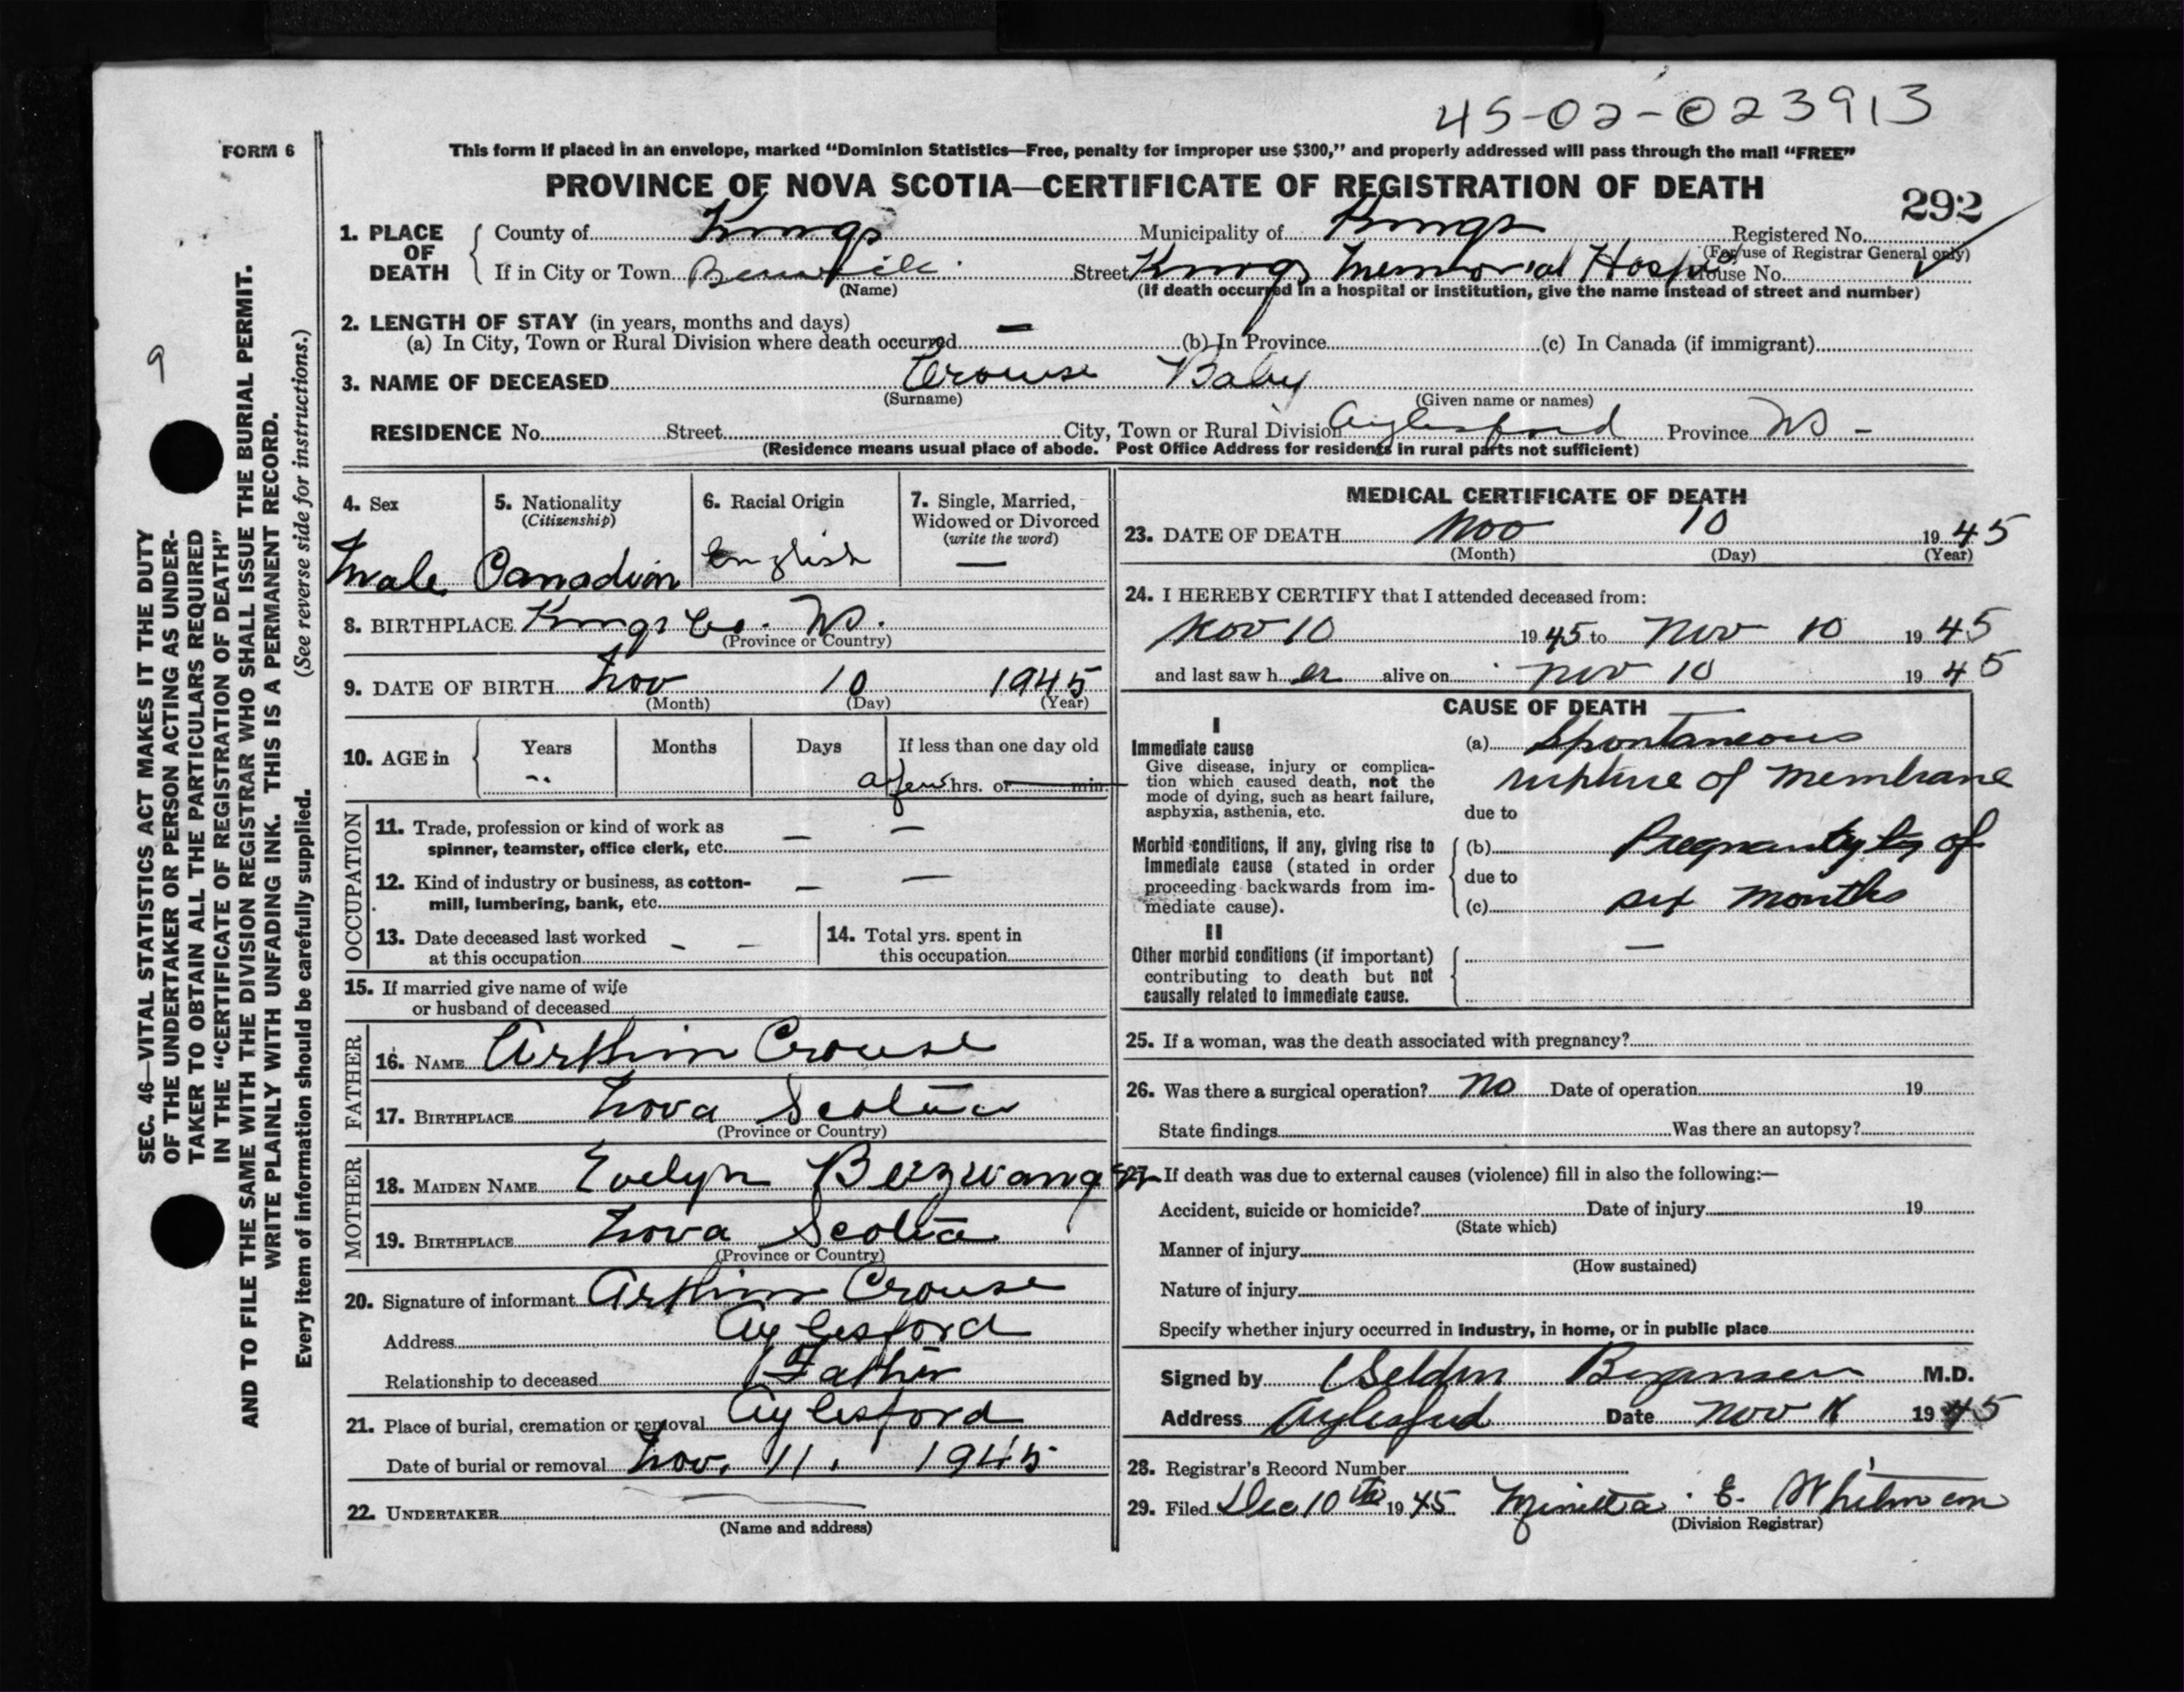 45-02-023913
FORM 6
This form if placed in an envelope, marked “Dominion Statistics—Free, penalty for improper use $300,” and properly addressed will pass through the mail “FREE”
PROVINCE OF NOVA SCOTIA—CERTIFICATE OF REGISTRATION OF DEATH
292
1. PLACE OF DEATH
County of Kings Municipality of Kings Registered No.
(For use of Registrar General only)
If in City or Town Street Kings Memorial Hosp. House No.
(Name) (If death occurred in a hospital or institution, give the name instead of street and number)
2. LENGTH OF STAY (in years, months and days)
(a) In City, Town or Rural Division where death occurred — (b) In Province (c) In Canada (if immigrant)
3. NAME OF DECEASED Crouse Baby
(Surname) (Given name or names)
RESIDENCE No. Street City, Town or Rural Division Aylesford Province NS -
(Residence means usual place of abode. Post Office Address for residents in rural parts not sufficient)
4. Sex Male
5. Nationality
(Citizenship)
Canadian
6. Racial Origin
English
7. Single, Married,
Widowed or Divorced
(write the word)
—
8. BIRTHPLACE Kings Co. NS.
(Province or Country)
9. DATE OF BIRTH Nov 10 1945
(Month) (Day) (Year)
10. AGE in
Years Months Days If less than one day old
a few hrs. or min.
OCCUPATION
11. Trade, profession or kind of work as — —
spinner, teamster, office clerk, etc.
12. Kind of industry or business, as cotton- — —
mill, lumbering, bank, etc.
13. Date deceased last worked — —
at this occupation
14. Total yrs. spent in
this occupation
15. If married give name of wife
or husband of deceased
FATHER
16. NAME Arthur Crouse
17. BIRTHPLACE Nova Scotia
(Province or Country)
MOTHER
18. MAIDEN NAME Evelyn Bezwanger
19. BIRTHPLACE Nova Scotia
(Province or Country)
20. Signature of informant Arthur Crouse
Address Aylesford
Relationship to deceased Father
21. Place of burial, cremation or removal Aylesford
Date of burial or removal Nov. 11. 1945
22. UNDERTAKER
(Name and address)
MEDICAL CERTIFICATE OF DEATH
23. DATE OF DEATH Nov 10 1945
(Month) (Day) (Year)
24. I HEREBY CERTIFY that I attended deceased from:
Nov 10 1945 to Nov 10 1945
and last saw her alive on Nov 10 1945
CAUSE OF DEATH
I
Immediate cause
Give disease, injury or complica-
tion which caused death, not the
mode of dying, such as heart failure,
asphyxia, asthenia, etc.
(a) Spontaneous
rupture of membrane
due to
Morbid conditions, if any, giving rise to
immediate cause (stated in order
proceeding backwards from im-
mediate cause).
(b) Pregnancy of
due to
(c) six months
II
Other morbid conditions (if important)
contributing to death but not
causally related to immediate cause.
—
25. If a woman, was the death associated with pregnancy?
26. Was there a surgical operation? No Date of operation 19
State findings Was there an autopsy?
27. If death was due to external causes (violence) fill in also the following:—
Accident, suicide or homicide? Date of injury 19
(State which)
Manner of injury
(How sustained)
Nature of injury
Specify whether injury occurred in industry, in home, or in public place
Signed by M.D.
Address Aylesford Date Nov 1945
28. Registrar's Record Number
29. Filed Dec 10th 1945 E. Whitman
(Division Registrar)
9
SEC. 46—VITAL STATISTICS ACT MAKES IT THE DUTY
OF THE UNDERTAKER OR PERSON ACTING AS UNDER-
TAKER TO OBTAIN ALL THE PARTICULARS REQUIRED
IN THE “CERTIFICATE OF REGISTRATION OF DEATH”
AND TO FILE THE SAME WITH THE DIVISION REGISTRAR WHO SHALL ISSUE THE BURIAL PERMIT.
WRITE PLAINLY WITH UNFADING INK. THIS IS A PERMANENT RECORD.
Every item of information should be carefully supplied. (See reverse side for instructions.)